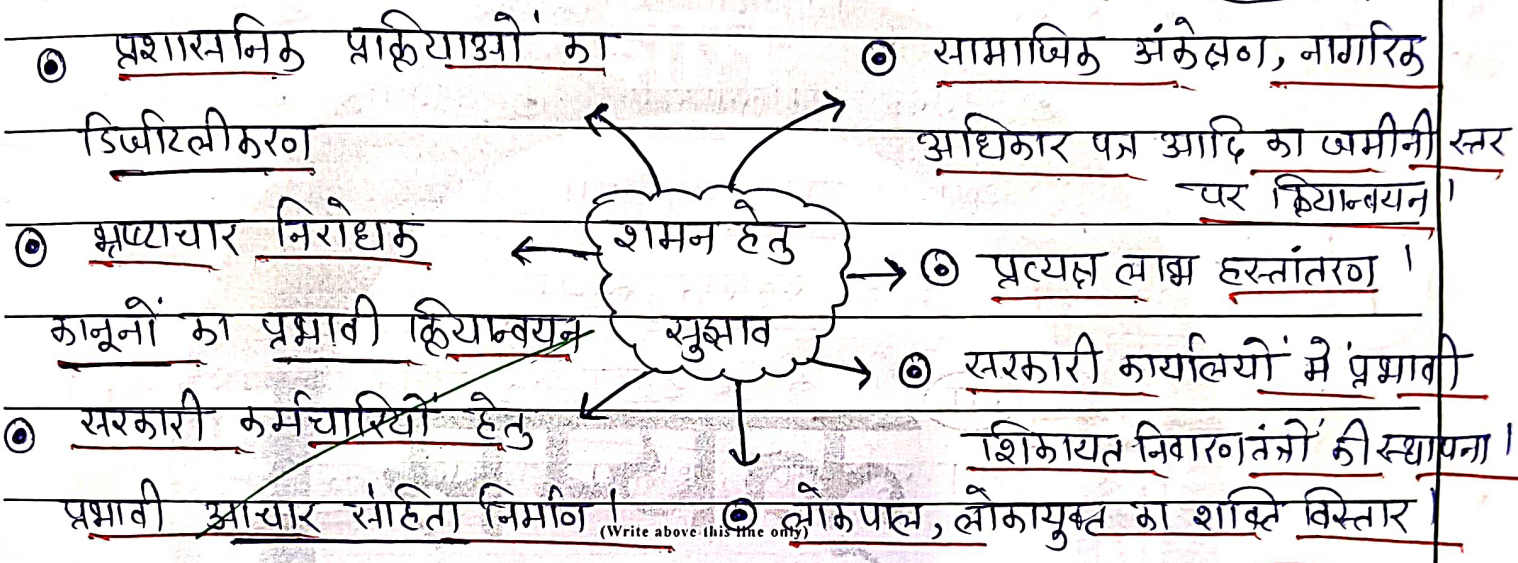 ⦿ प्रशासनिक प्रक्रियाओं का
डिजीटलीकरण
⦿ भ्रष्टाचार निरोधक
कानूनों का प्रभावी क्रियान्वयन
⦿ सरकारी कर्मचारियों हेतु
प्रभावी आचार संहिता निर्माण।
शमन हेतु
सुझाव
⦿ सामाजिक अंकेक्षण, नागरिक
अधिकार पत्र आदि का जमीनी स्तर
पर क्रियान्वयन।
⦿ प्रत्यक्ष लाभ हस्तांतरण।
⦿ सरकारी कार्यालयों में प्रभावी
शिकायत निवारण तंत्रों की स्थापना।
⦿ लोकपाल, लोकायुक्त का शक्ति विस्तार।
(Write above this line only)